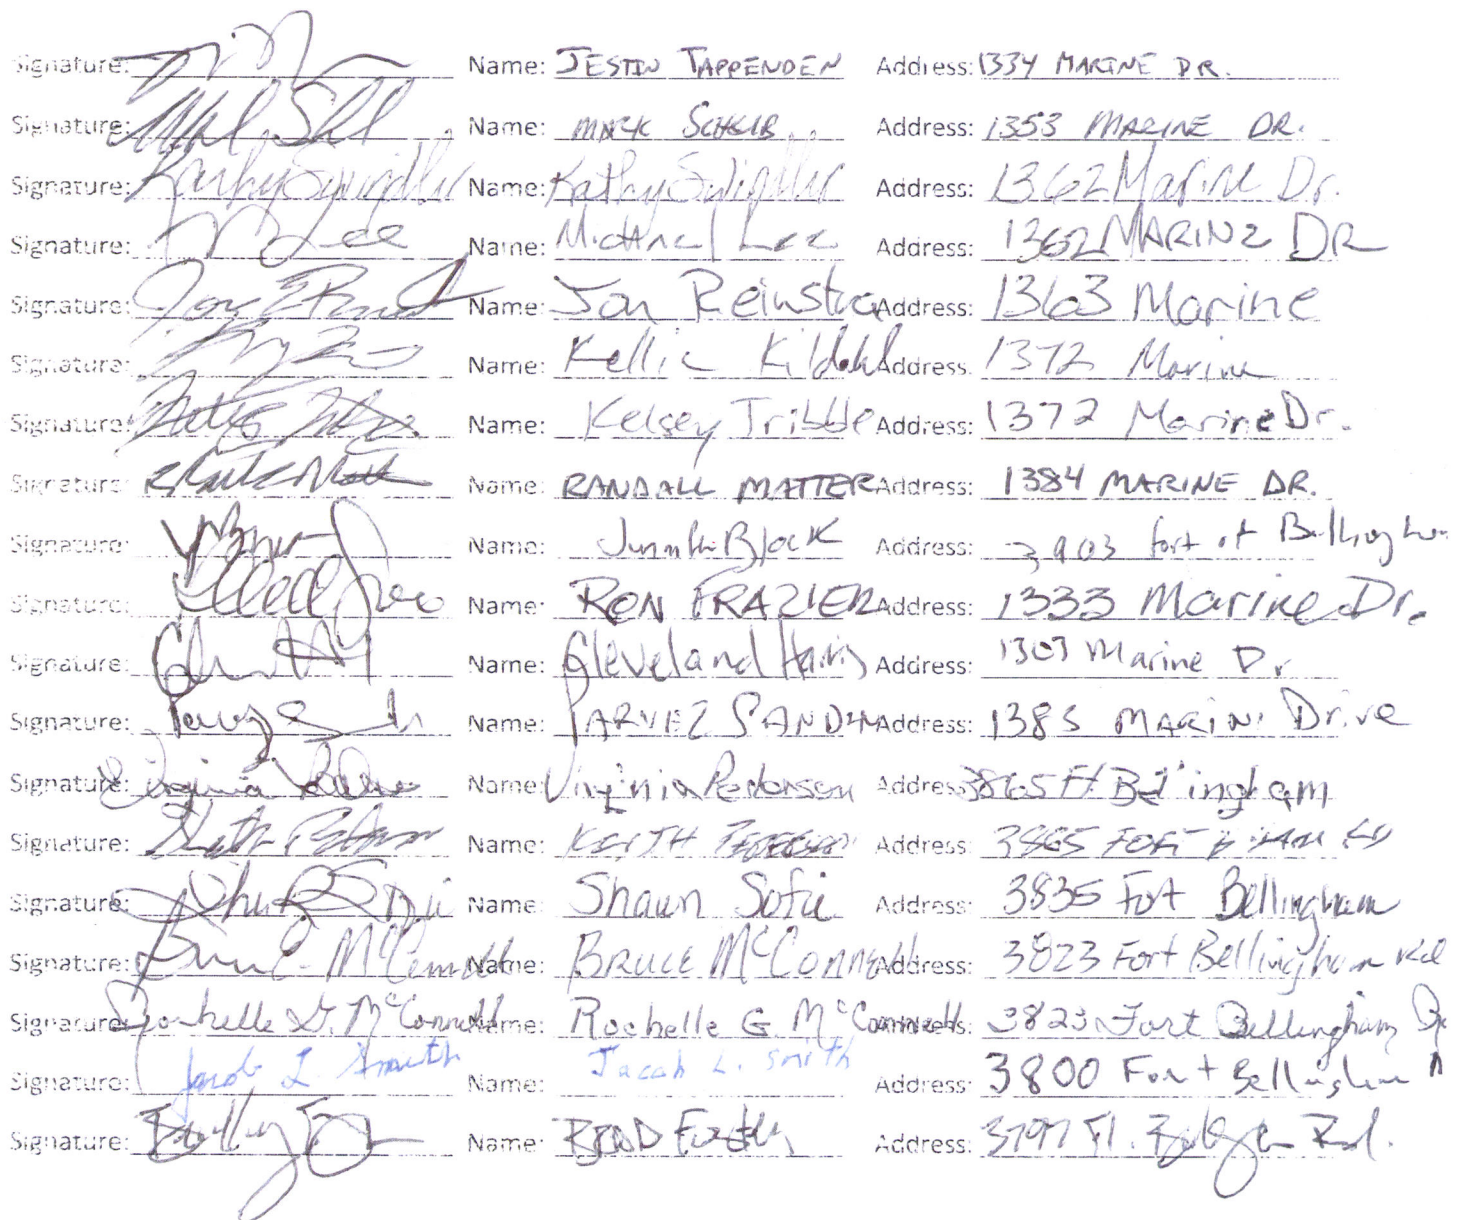 Signature: Name: JESTIN TAPPENDEN Address: 1334 MARINE DR.
Signature: Name: MARK SCHEIB Address: 1353 MARINE DR.
Signature: Kathy Swindler Name: Kathy Swindler Address: 1362 Marine Dr.
Signature: M Lee Name: Michael Lee Address: 1362 MARINE DR
Signature: Name: Jon Reinstra Address: 1363 Marine
Signature: Name: Kellie Kildahl Address: 1372 Marine
Signature: Name: Kelsey Tribble Address: 1372 Marine Dr.
Signature: Name: RANDALL MATTER Address: 1384 MARINE DR.
Signature: Name: Black Address: 3903 fort of Bellingham
Signature: Name: RON FRAZIER Address: 1333 Marine Dr.
Signature: Name: Cleveland Harris Address: 1303 Marine Dr
Signature: Name: PARVEZ SANDHU Address: 1383 MARINE Drive
Signature: Virginia Name: Virginia Pederson Address: 3865 Ft Bellingham
Signature: Name: KEITH PEDERSON Address: 3865 FORT
Signature: Name: Shawn Sofie Address: 3835 Fort Bellingham
Signature: Bruce McConnell Name: BRUCE McCONNELL Address: 3823 Fort Bellingham Rd
Signature: Rochelle G. McConnell Name: Rochelle G McConnell Address: 3823 Fort Bellingham
Signature: Jacob L. Smith Name: Jacob L. Smith Address: 3800 Fort Bellingham
Signature: Name: BRAD Address: 3797 Ft. Rd.